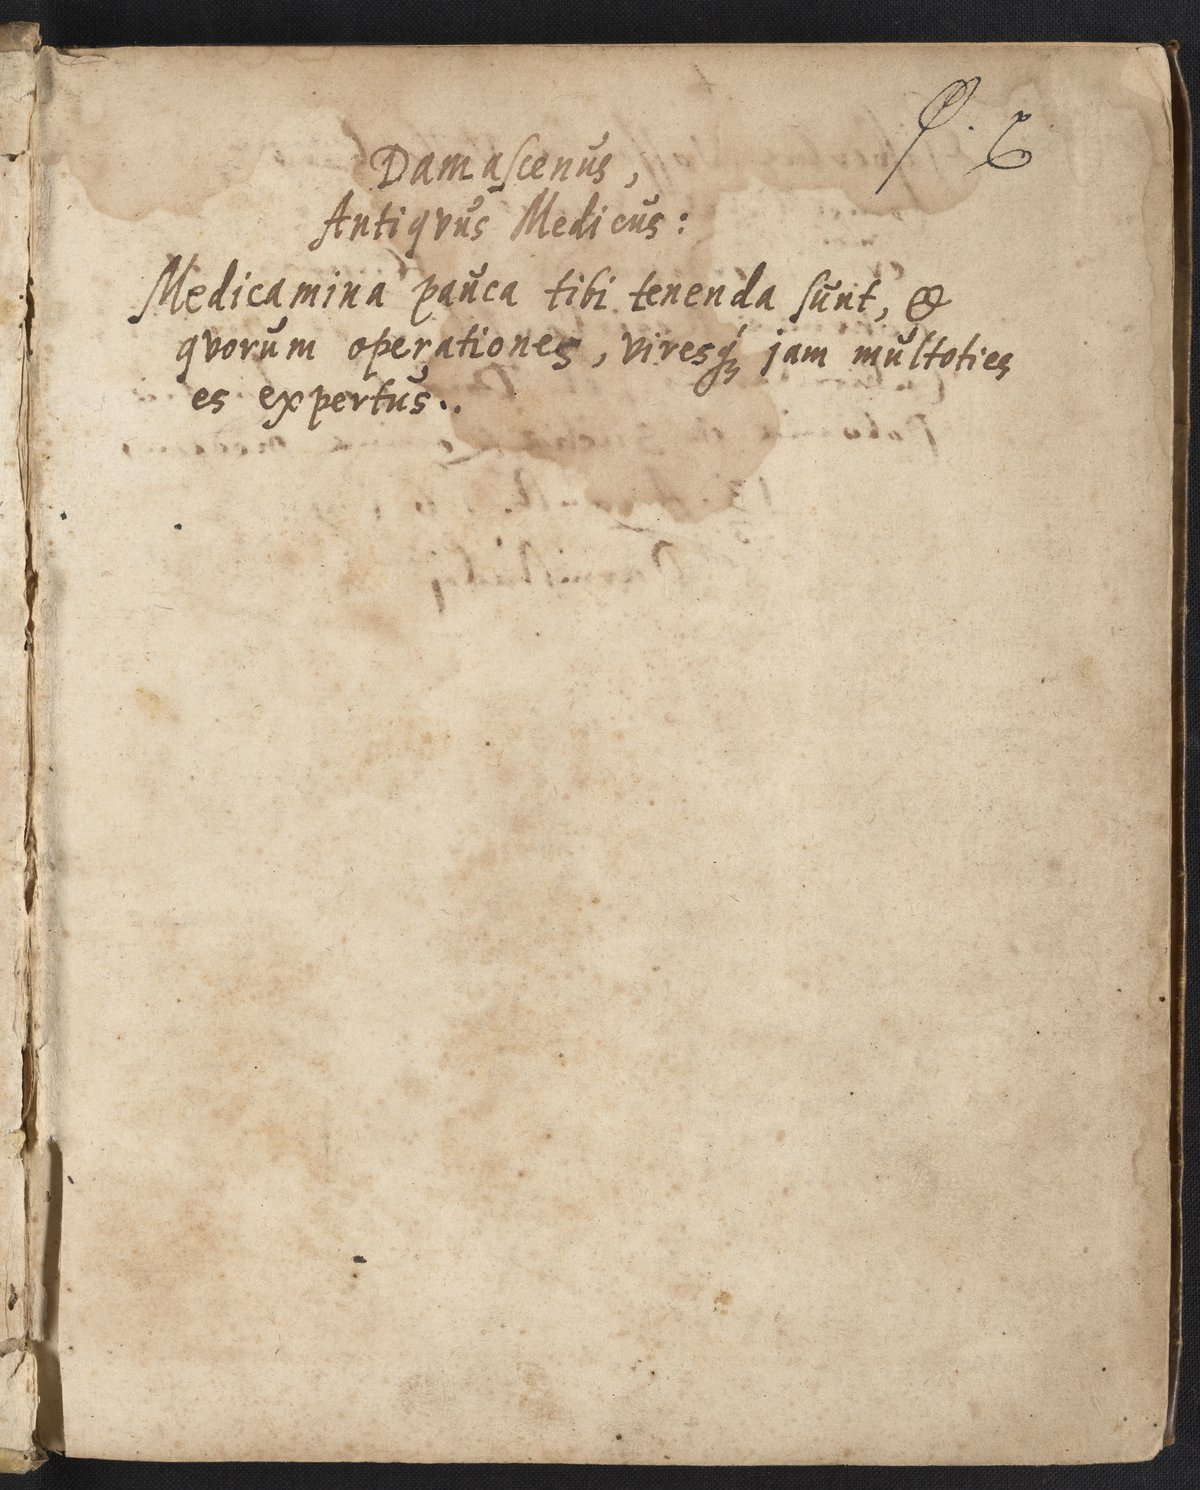 Damascenus,
Antiqvus Medicus:
Medicamina pauca tibi tenenda sunt, &
qvorum operationes, viresq́; jam multoties
es expertus..